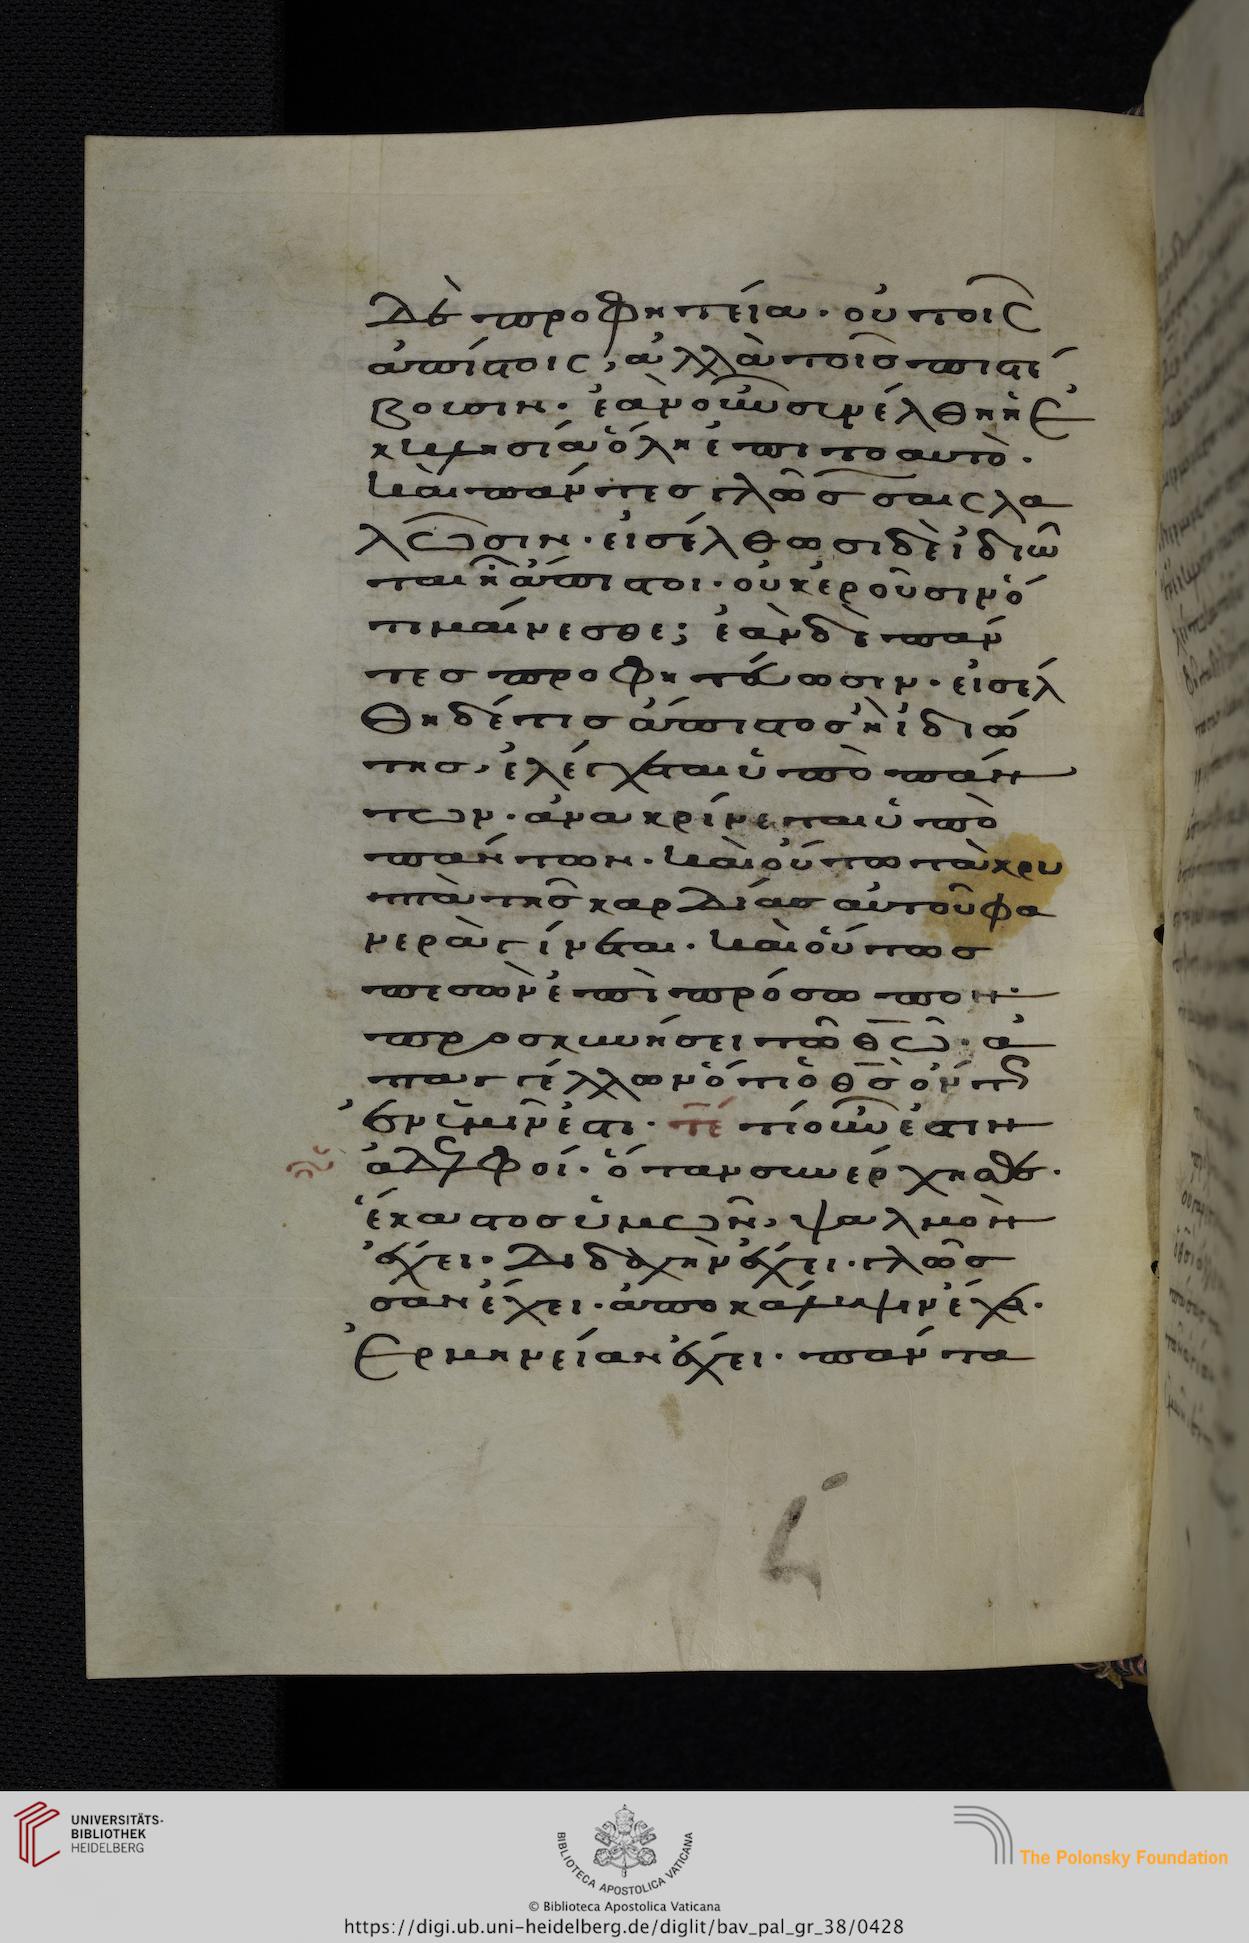 δὲ προφητεία· οὐ τοῖς
ἀπίστοις, ἀλλὰ τοῖς πιστεύ
ουσιν· ἐὰν οὖν συνέλθη ἡ ἐκ
κλησία ὅλη ἐπι το αυτὸ·
καὶ πάντες γλώσσαις λα
λῶσιν· εἰσέλθωσι δὲ ἰδιῶ
ται ἢ ἄπιστοι· οὐκ ἐροῦσιν ὅ
τι μαίνεσθε; ἐὰν δὲ πάν
τες προφητεύωσιν· εἰσέλ
θη δέ τις ἄπιστος ἢ ἰδιώ
της, ἐλέγχεται ὑπὸ πάν
των· ἀνακρίνεται ὑπὸ
πάντων· καὶ οὕτω τὰ κρυ
πτὰ τῆς καρδίας αὐτοῦ φα
νερὰ γίνεται· καὶ οὕτως
πεσὼν ἐπὶ πρόσωπον·
προσκυνήσει τῶ θ̅ω̅· ἀ
παγγέλλων ὅτι ὁ θ̅ς̅ ὄντως
ἐν ὑμῖν ἐστι· τέ τί οὖν ἐστιν
ἀδελφοί· ὅταν συνέρχησθε·
ἕκαστος ὑμῶν, ψαλμὸν
ἔχει· διδαχὴν ἔχει· γλῶσ
σαν ἔχει· ἀποκάλυψιν ἔχει·
Ἑρμηνείαν ἔχει· πάντα
UNIVERSITÄTS-
BIBLIOTHEK
HEIDELBERG
BIBLIOTECA APOSTOLICA VATICANA
The Polonsky Foundation
© Biblioteca Apostolica Vaticana
https://digi.ub.uni-heidelberg.de/diglit/bav_pal_gr_38/0428